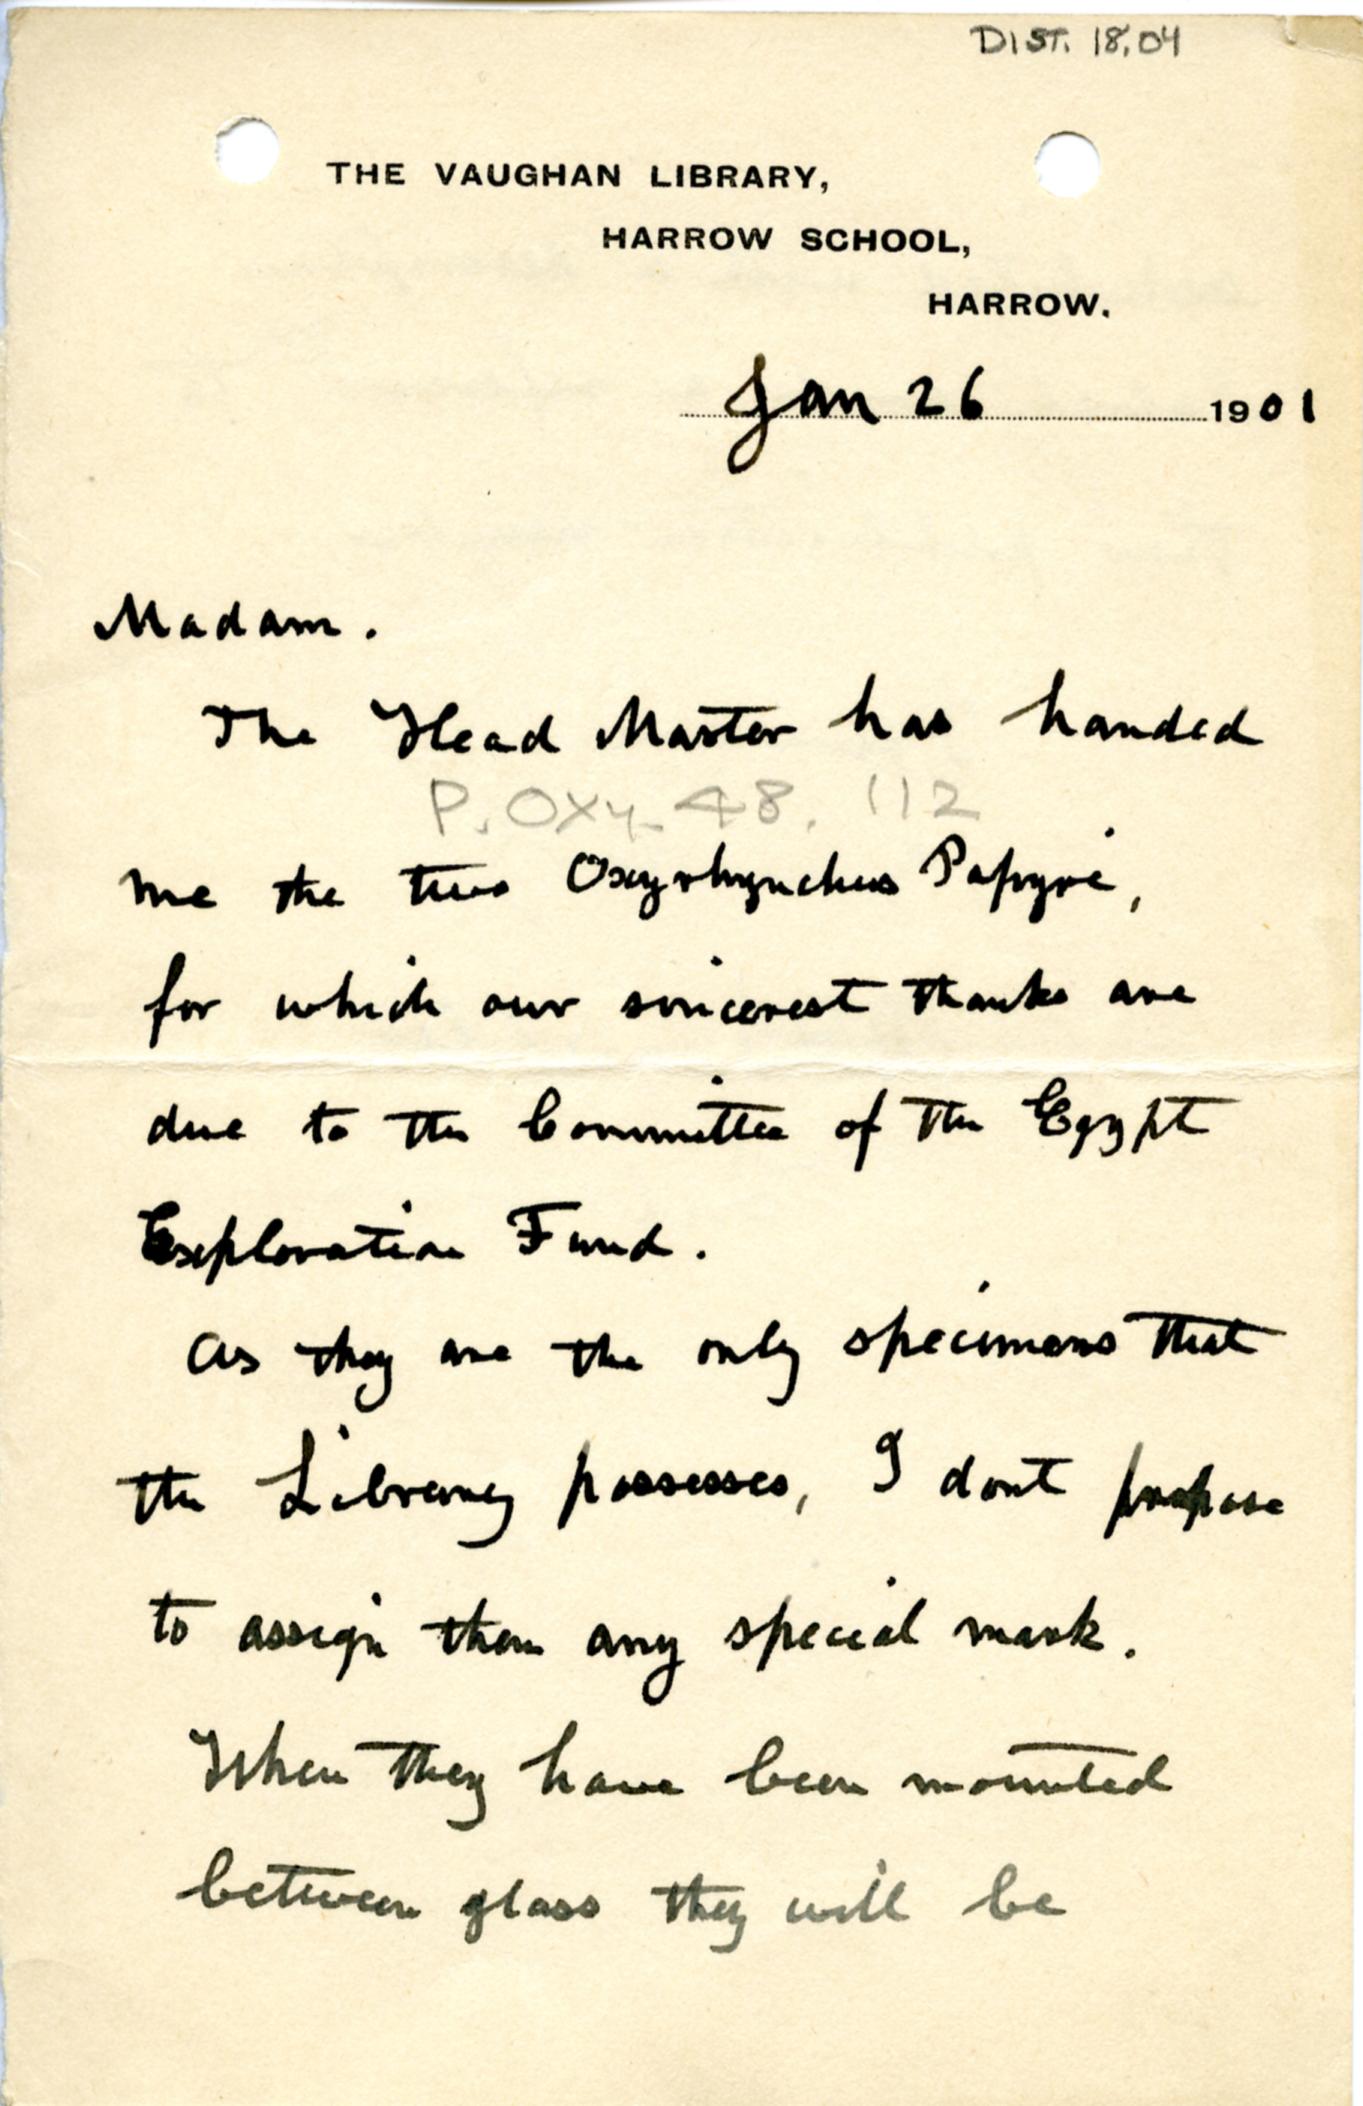 DIST. 18.04
THE VAUGHAN LIBRARY,
HARROW SCHOOL,
HARROW.
Jan 26 1901
Madam.
The Head Master has handed
P. Oxy. 48. 112
me the two Oxyrhynchus Papyri,
for which our sincerest thanks are
due to the Committee of the Egypt
Exploration Fund.
As they are the only specimens that
the Library possesses, I dont propose
to assign them any special mark.
When they have been mounted
between glass they will be